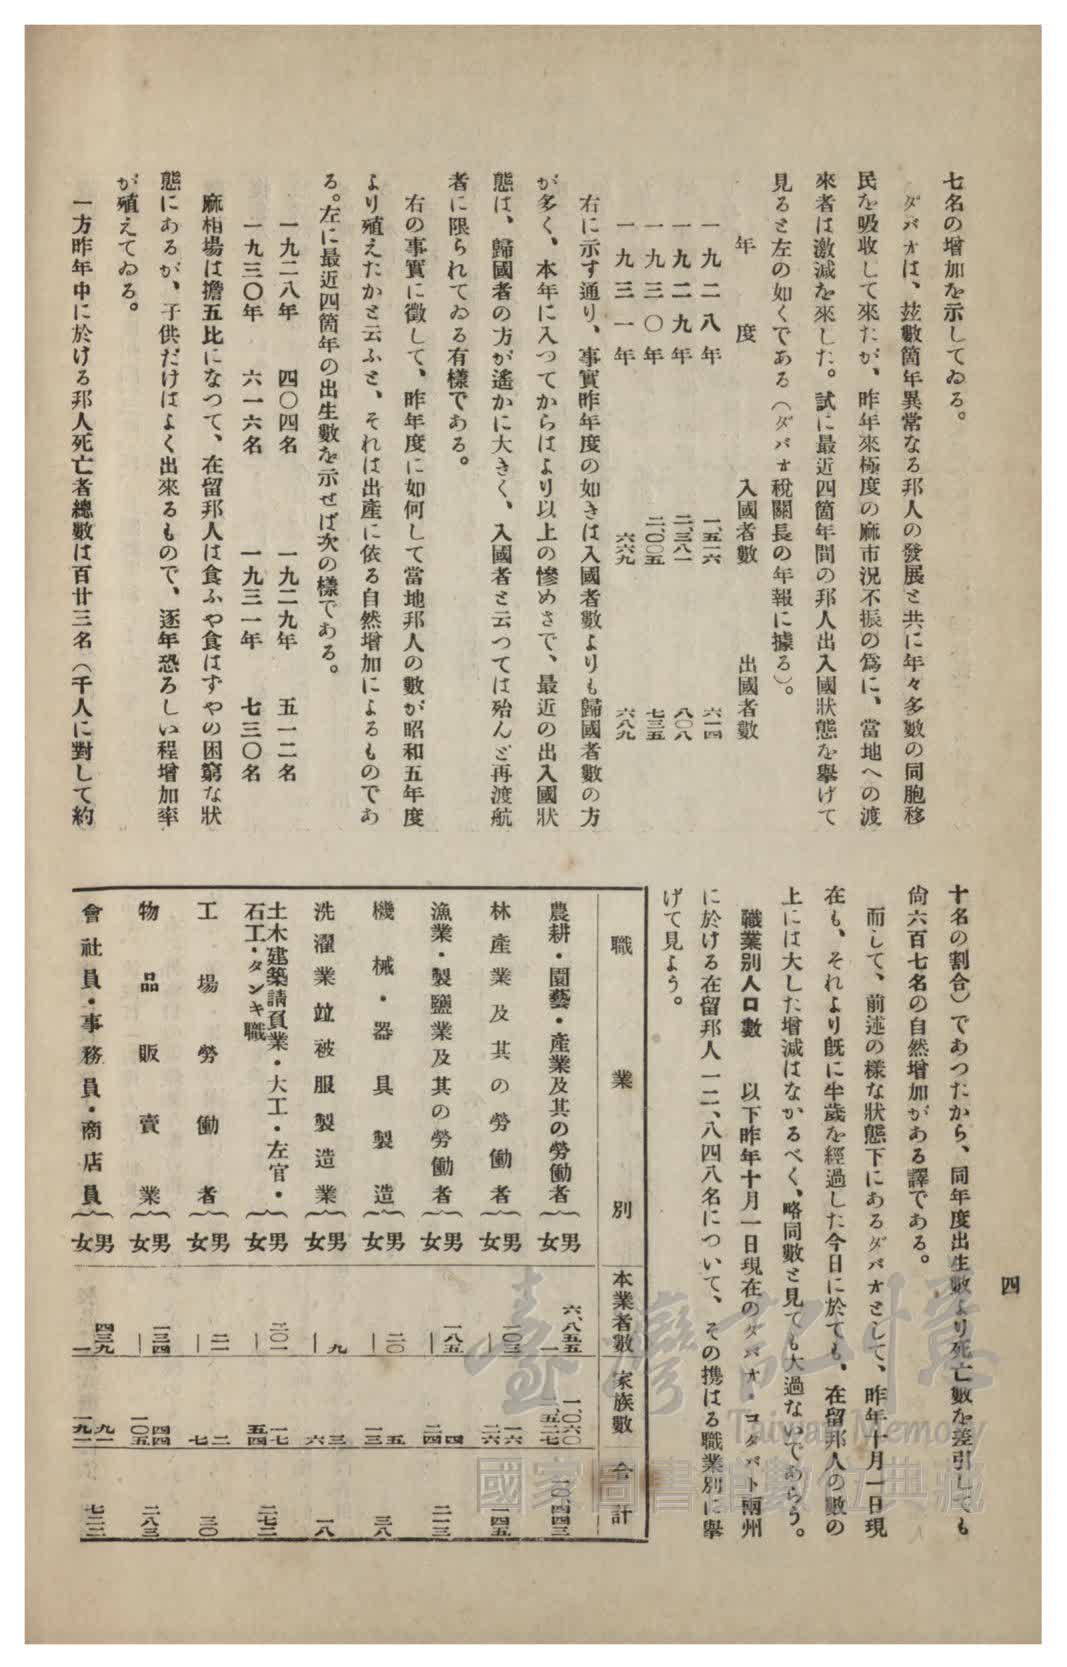 七名の增加を示してゐる。
ダバオは、玆數箇年異常なる邦人の發展と共に年々多數の同胞移
民を吸收して來たが、昨年來極度の麻市況不振の爲に、當地への渡
來者は激減を來した。試に最近四箇年間の邦人出入國狀態を擧げて
見ると左の如くである（ダバオ稅關長の年報に據る）。
年度 入國者數 出國者數
一九二八年 一、五一六 六一四
一九二九年 二、三八一 八〇八
一九三〇年 二、〇〇五 七三五
一九三一年 六六九 六八九
右に示す通り、事實昨年度の如きは入國者數よりも歸國者數の方
が多く、本年に入つてからはより以上の慘めさで、最近の出入國狀
態は、歸國者の方が遙かに大きく、入國者と云つては殆んど再渡航
者に限られてゐる有樣である。
右の事實に徵して、昨年度に如何して當地邦人の數が昭和五年度
より殖えたかと云ふと、それは出產に依る自然增加によるものであ
る。左に最近四箇年の出生數を示せば次の樣である。
一九二八年 四〇四名 一九二九年 五一二名
一九三〇年 六一六名 一九三一年 七三〇名
麻相場は擔五比になつて、在留邦人は食ふや食はずやの困窮な狀
態にあるが、子供だけはよく出來るもので、逐年恐ろしい程增加率
が殖えてゐる。
一方昨年中に於ける邦人死亡者總數は百廿三名（千人に對して約
四
十名の割合）であつたから、同年度出生數より死亡數を差引しても
尙六百七名の自然增加がある譯である。
而して、前述の樣な狀態下にあるダバオとして、昨年十月一日現
在も、それより旣に半歲を經過した今日に於ても、在留邦人の數の
上には大した增減はなかるべく、略同數と見ても大過ないであらう。
職業別人口數 以下昨年十月一日現在のダバオ・コタバト兩州
に於ける在留邦人一二、八四八名について、その携はる職業別に擧
げて見よう。
職業別 本業者數 家族數 合計
農耕・園藝・產業及其の勞働者 男 女 六、八五五 一 一、〇六〇 二、五二七 一〇、四四三
林產業及其の勞働者 男 女 一〇三 ｜ 一六 二六 一四五
漁業・製鹽業及其の勞働者 男 女 一八五 ｜ 四 二四 二一三
機械・器具製造 男 女 二〇 ｜ 五 一三 三八
洗濯業竝被服製造業 男 女 九 ｜ 三 六 一八
土木建築請負業・大工・左官・
石工・タンキ職 男 女 二〇一 ｜ 一七 五四 二七二
工場勞働者 男 女 二一 ｜ 二 七 三〇
物品販賣業 男 女 一三四 ｜ 四四 一〇五 二八三
會社員・事務員・商店員 男 女 四三九 一 九一 一九一 七二二
臺灣記憶
Taiwan Memory
國家圖書館數位典藏